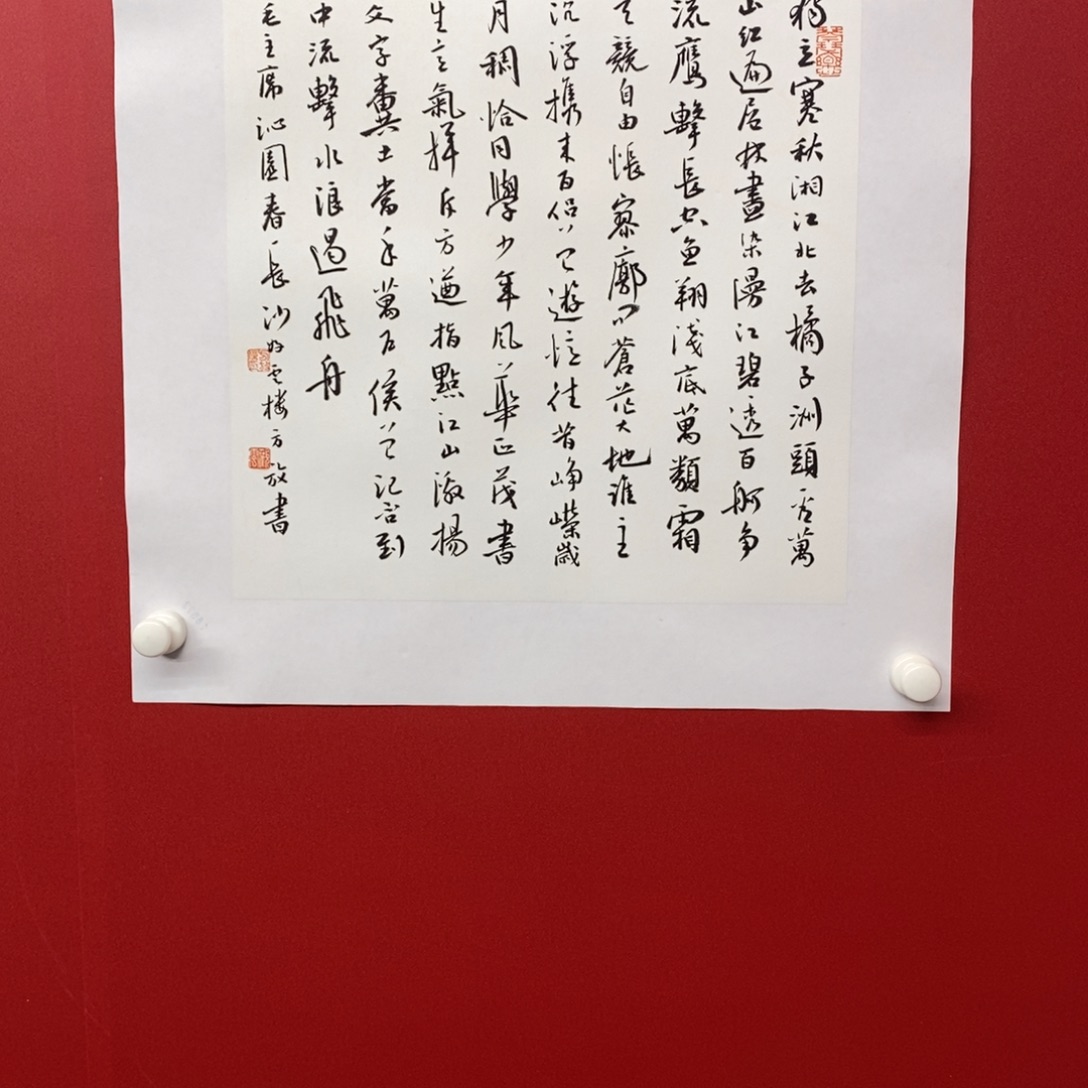 独立寒秋湘江北去橘子洲頭看萬
山紅遍层林盡染漫江碧透百舸争
流鹰擊長空魚翔淺底萬類霜
天競自由悵寥廓问蒼茫大地谁主
沉浮携来百侣曾遊憶往昔峥嶸歲
月稠恰同學少年风華正茂書
生意氣揮斥方遒指點江山激揚
文字糞土當年萬户侯曾记否到
中流擊水浪遏飛舟
毛主席沁園春一長沙 云楼方放書